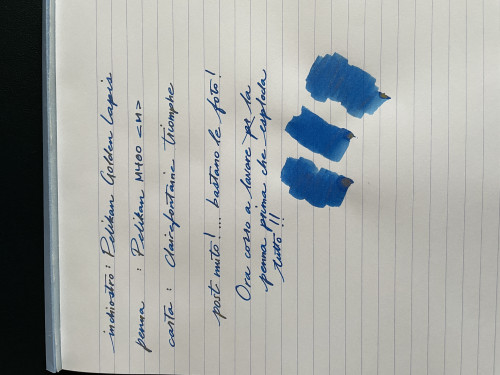 inchiostro: Pelikan Golden Lapis
penna : Pelikan M400 <M>
carta : Clairefontaine triomphe
post muto! ... bastano le foto!
Ora corro a lavare per la
penna prima che esploda
tutto !!